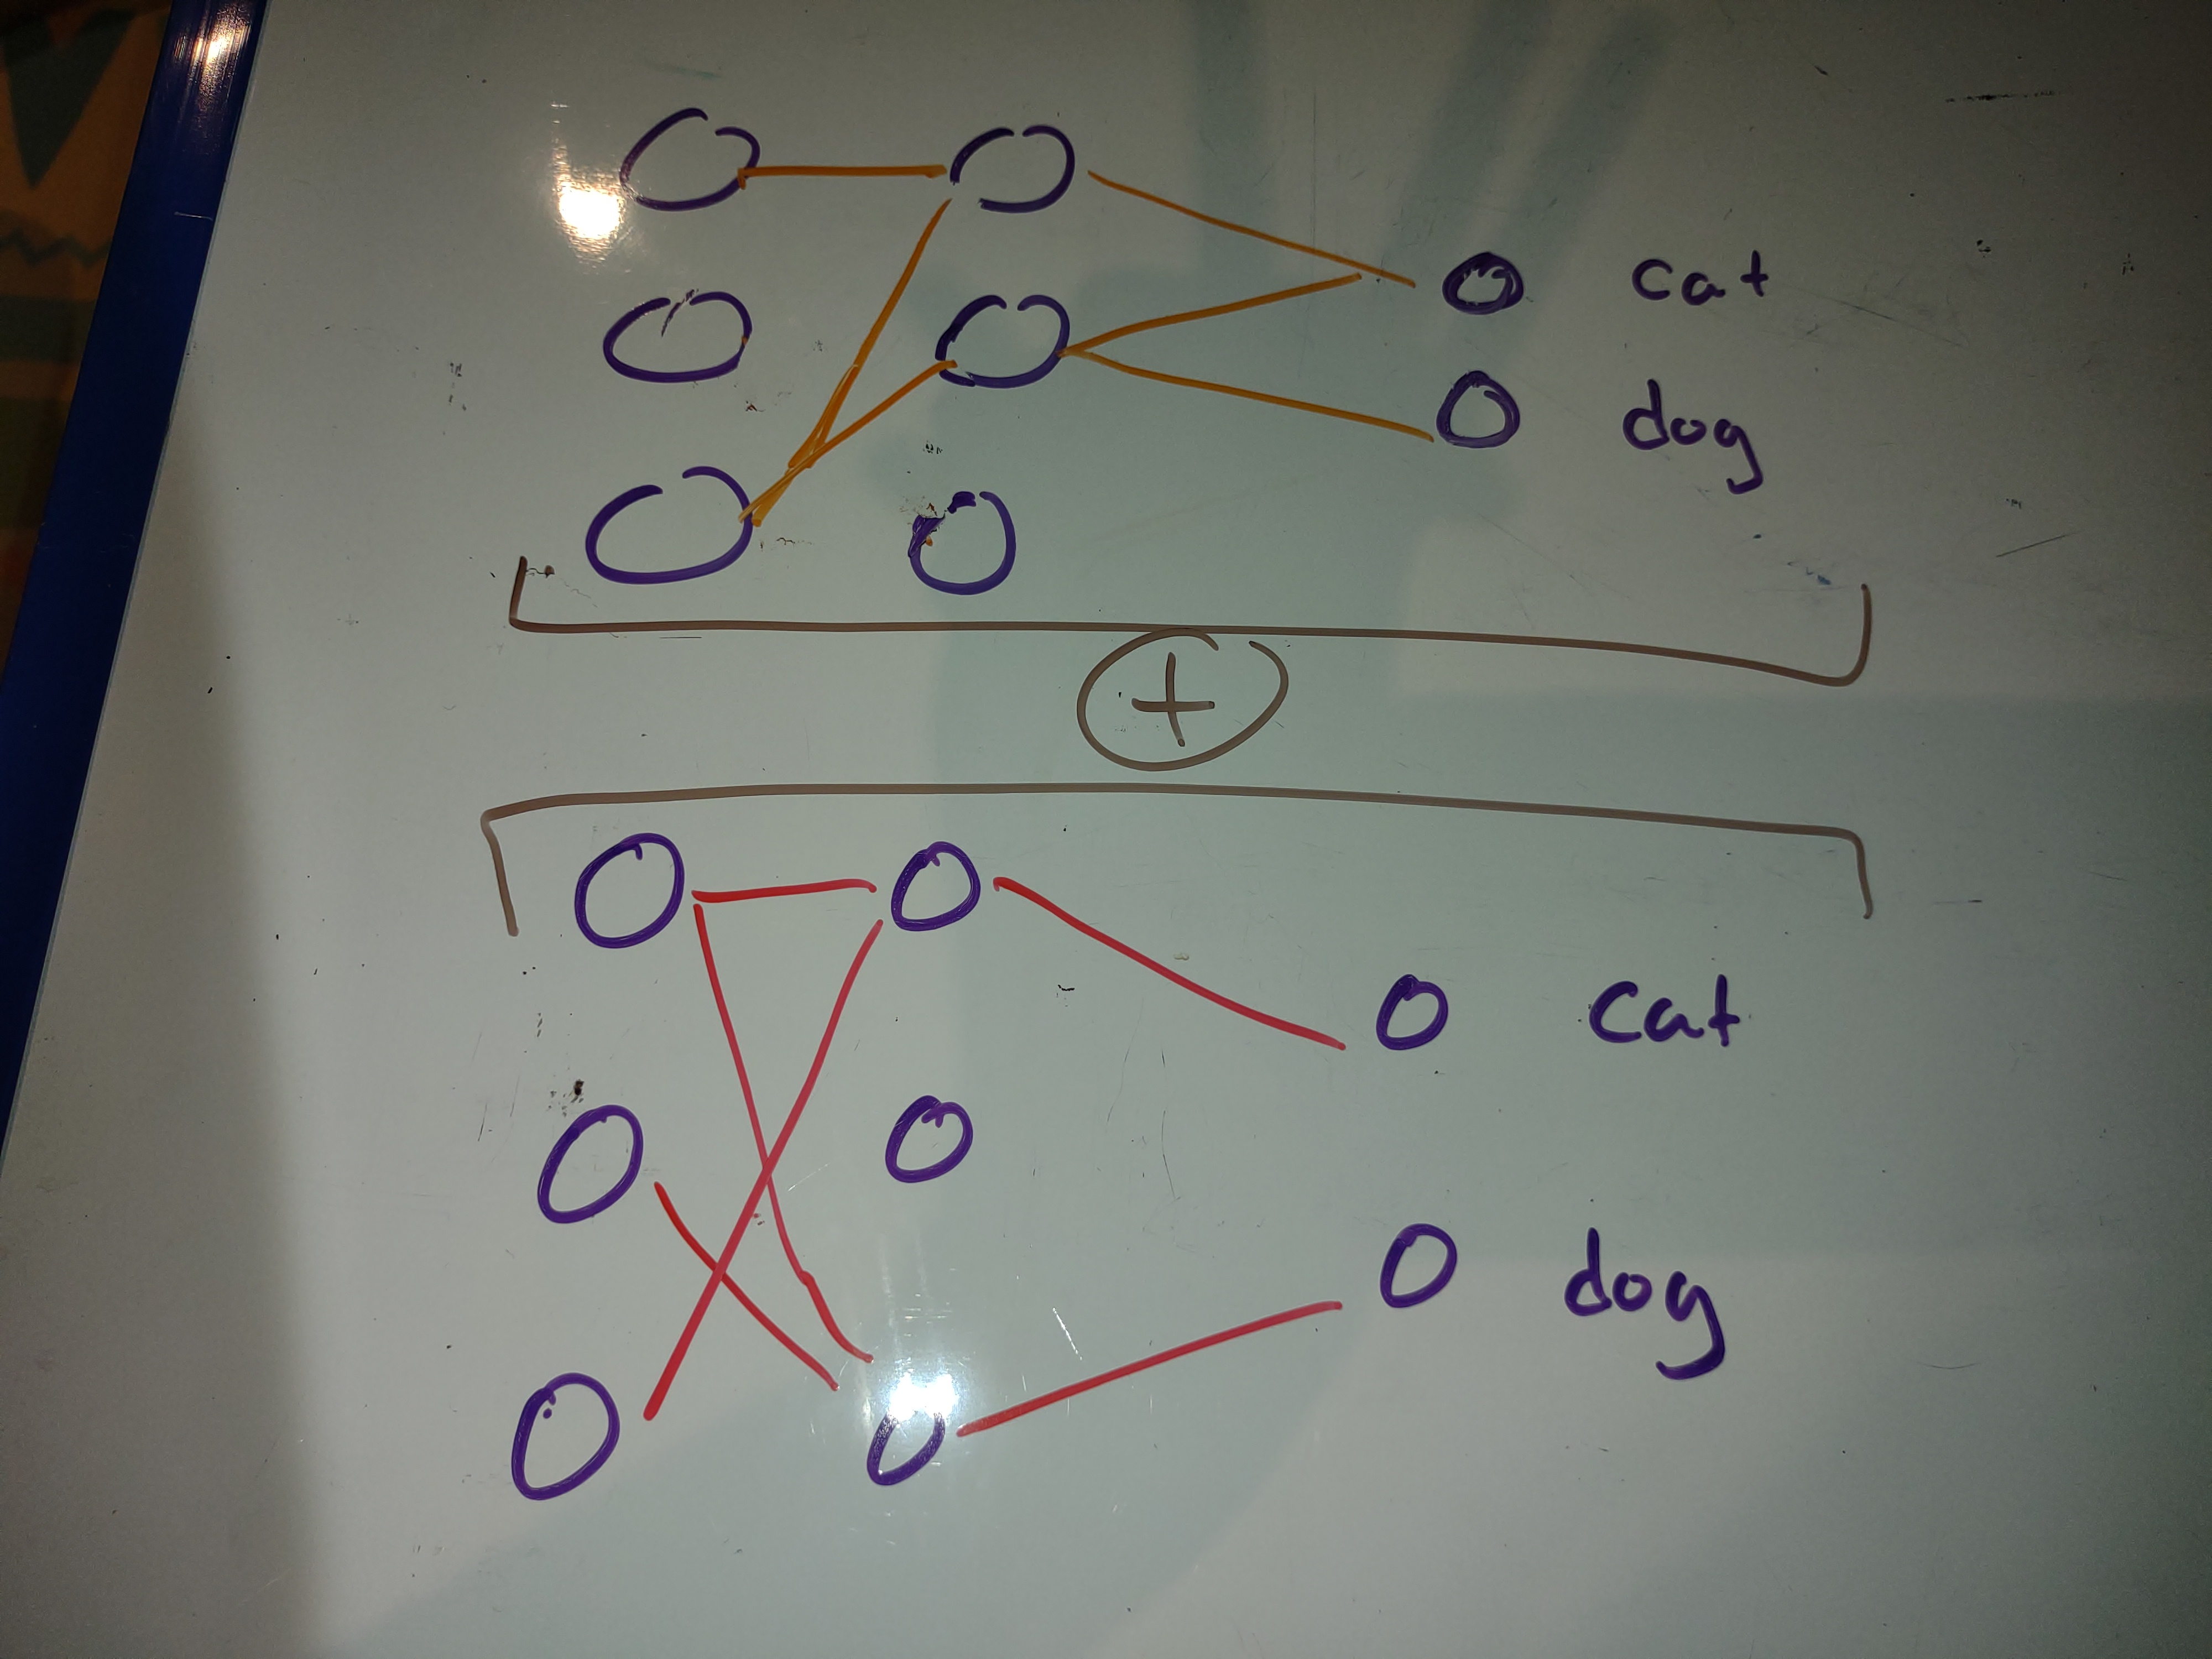 cat
dog
+
cat
dog